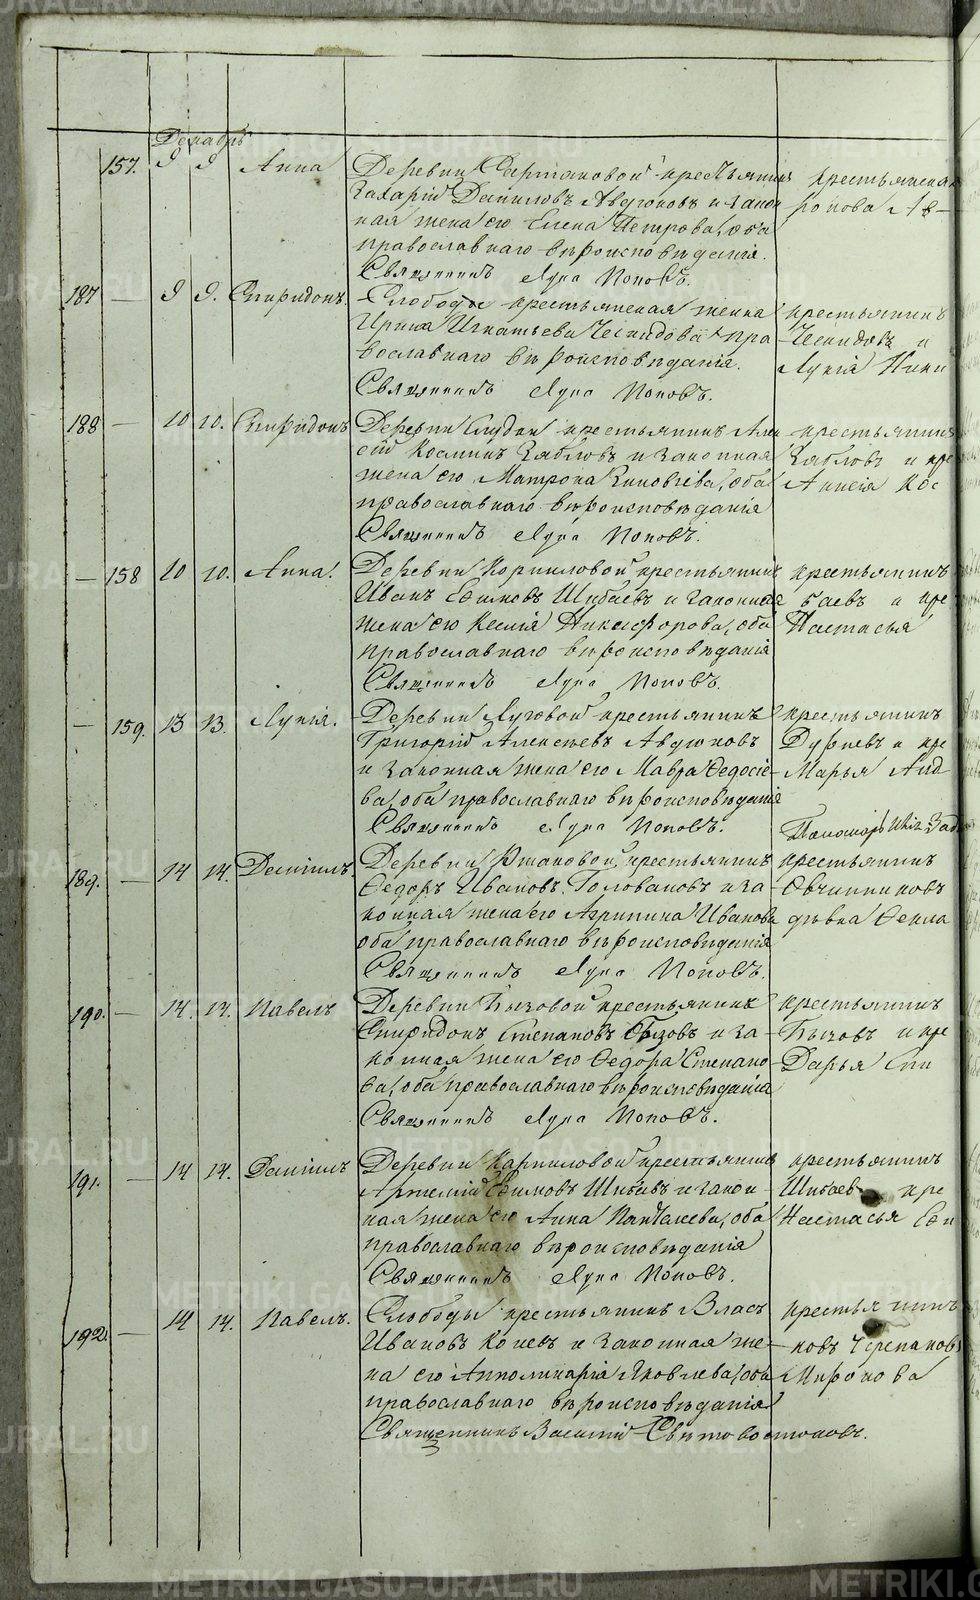 Декабрь
157. 9 9 Анна Деревни крестьянинъ
Захарій Даниловъ Авдюковъ и закон
ная жена его Елена Петрова, оба
православнаго вѣроисповѣданія.
Священникъ Лука Поповъ.
крестьянская
ронова Ав-
187 — 9 9. Спиридонъ. Слободы крестьянская женка
Ирина Игнатьева пра
вославнаго вѣроисповѣданія.
Священникъ Лука Поповъ.
крестьянинъ
и
Лукія Ники
188 — 10 10. Спиридонъ Деревни крестьянинъ
Козминъ Зябловъ и законная
жена его Матрона Зиновіева, оба
православнаго вѣроисповѣданія
Священникъ Лука Поповъ.
крестьянинъ
Зябловъ и кре
Кос
— 158 10 10. Анна. Деревни Корниловой крестьянинъ
Иванъ Ефимовъ Шибаевъ и законная
жена его Ксенія Никифорова, оба
православнаго вѣроисповѣданія
Священникъ Лука Поповъ.
крестьянинъ
баевъ и кре
Настасья
— 159. 13 13. Лукія. Деревни Луговой крестьянинъ
Григорій Алексѣевъ Авдюковъ
и законная жена его Мавра Ѳедосіе-
ва, оба православнаго вѣроисповѣданія
Священникъ Лука Поповъ.
крестьянинъ
и кре
Марья Анд
Пономарь
189. — 14 14. Даніилъ. Деревни крестьянинъ
Ѳедоръ Ивановъ Головановъ и за-
конная жена его Агрипина Иванова
оба православнаго вѣроисповѣданія
Священникъ Лука Поповъ.
крестьянинъ
Овчинниковъ
дѣвка Ѳекла
190. — 14. 14. Павелъ Деревни Бызовой крестьянинъ
Спиридонъ Степановъ Бызовъ и за-
конная жена его Ѳедора Степано-
ва, оба православнаго вѣроисповѣданія
Священникъ Лука Поповъ.
крестьянинъ
Бызовъ и кре
Дарья Спи
191. — 14 14. Даніилъ Деревни Карниловой крестьянинъ
Артемій Ефимовъ Шибаевъ и закон-
ная жена его Анна оба
православнаго вѣроисповѣданія
Священникъ Лука Поповъ.
крестьянинъ
Шибаев кре
Настасья Ефи
192. — 14 14. Павелъ. Слободы крестьянинъ Власъ
Ивановъ Коневъ и законная же-
на его Апполинарія Яковлева, оба
православнаго вѣроисповѣданія
Священникъ Василій Свѣтовостоковъ.
крестьянинъ
ковъ Черепановъ
Миронова
METRIKI.GASO-URAL.RU